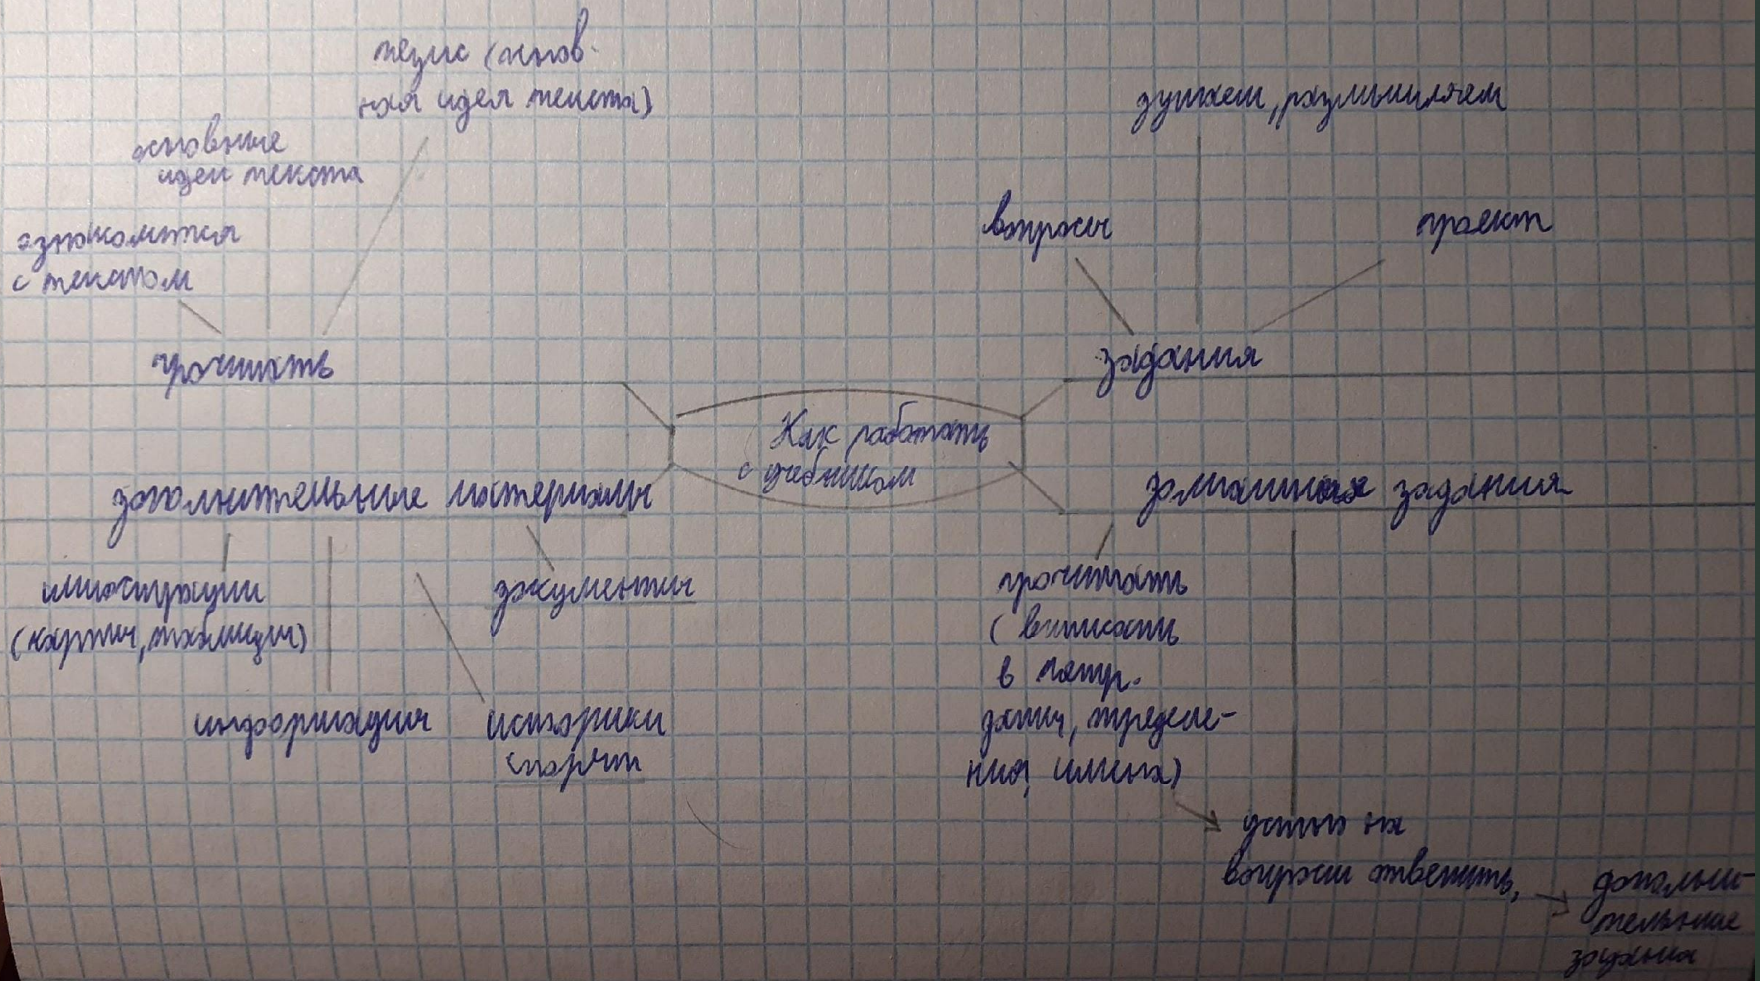 тезис (основ-
ная идея текста)
основные
идеи текста
ознакомится
с текстом
прочитать
думаем, размышляем
вопросы
проект
задания
Как работать
с учебником
дополнительные материалы
иллюстрации
(карты, таблицы)
документы
информация
историки
спорят
домашнее задания
прочитать
(вникать
в матер.
даты, определе-
ния, имена)
устно на
вопросы ответить,
дополни-
тельные
задания